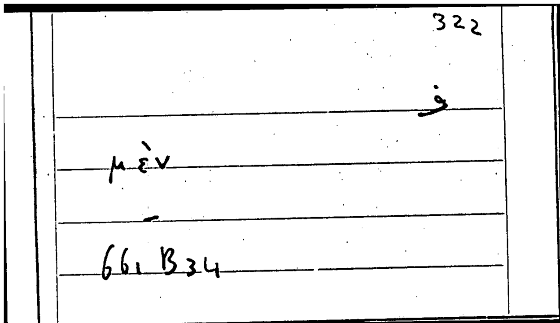 322
μὲν
–
661 B34